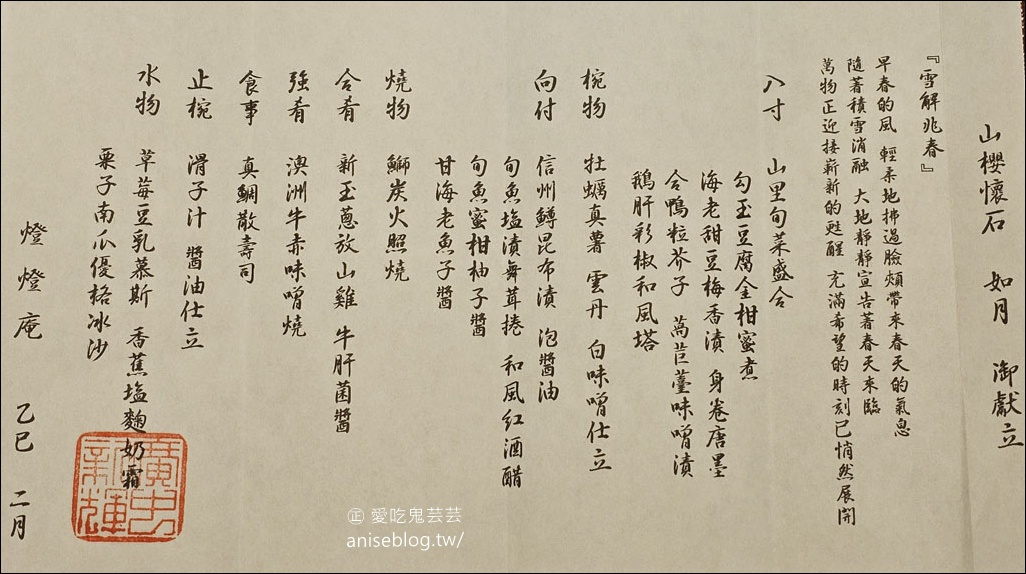 山櫻懷石 如月 御獻立
『雪解兆春』
早春的風 輕柔地拂過臉頰帶來春天的氣息
隨著積雪消融 大地靜靜宣告著春天來臨
萬物正迎接嶄新的甦醒 充滿希望的時刻已悄然展開
入寸 山里旬菜盛合
勾玉豆腐金柑蜜煮
海老甜豆梅香漬 身卷唐墨
合鴨粒芥子 萵苣薹味噌漬
鵝肝彩椒和風塔
椀物 牡蠣真薯 雲丹 白味噌仕立
向付 信州鱒昆布漬 泡醬油
旬魚塩漬舞茸捲 和風紅酒醋
旬魚蜜柑柚子醬
甘海老魚子醬
燒物 鰤炭火照燒
合肴 新玉蔥放山雞 牛肝菌醬
強肴 澳洲牛赤味噌燒
食事 真鯛散壽司
止椀 滑子汁 醬油仕立
水物 草莓豆乳慕斯 香蕉塩麴奶霜
栗子南瓜優格冰沙
燈燈庵 乙巳 二月
正 愛吃鬼芸芸
aniseblog.tw/